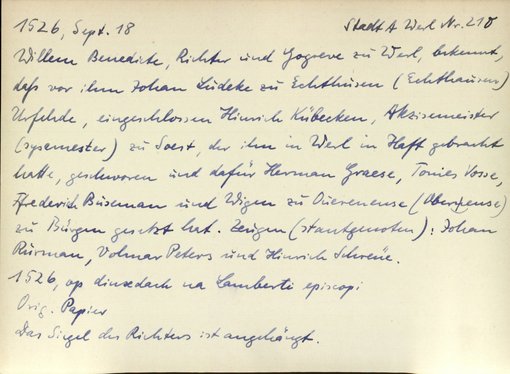 1526, Sept. 18 Stadt A Werl Nr. 210
Willem Benedikte, Richter und Gogreve zu Werl, bekennt,
daß vor ihm Johan Lüdeke zu Echthusen (Echthausen)
Urfehde, eingeschlossen Hinrich Kübecken, Akzisemeister
(sysemester) zu Soest, der ihn in Werl in Haft gebracht
hatte, geschworen und dafür Herman Graese, Tonies Vosse,
Frederich Büseman und Wigen zu Overenense (Oberense)
zu Bürgen gesetzt hat. Zeugen (stantgenoten): Johan
Rurman, Volmar Peters und Hinrich Schreüe.
1526, op dinxedach na Lamberti episcopi
Orig. Papier
Das Siegel des Richters ist angehängt.